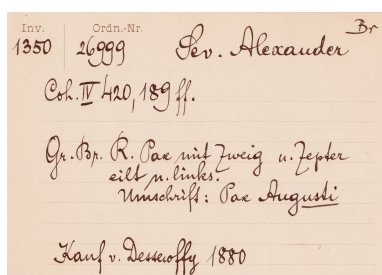 Br
Inv. Ordn.-Nr.
1350 26999 Sev. Alexander
Coh. IV 420, 189 ff.
Gr. Br. R. Pax mit Zweig u. Zepter
eilt n. links.
Umschrift: Pax Augusti
Kauf v. Dessewffy 1880